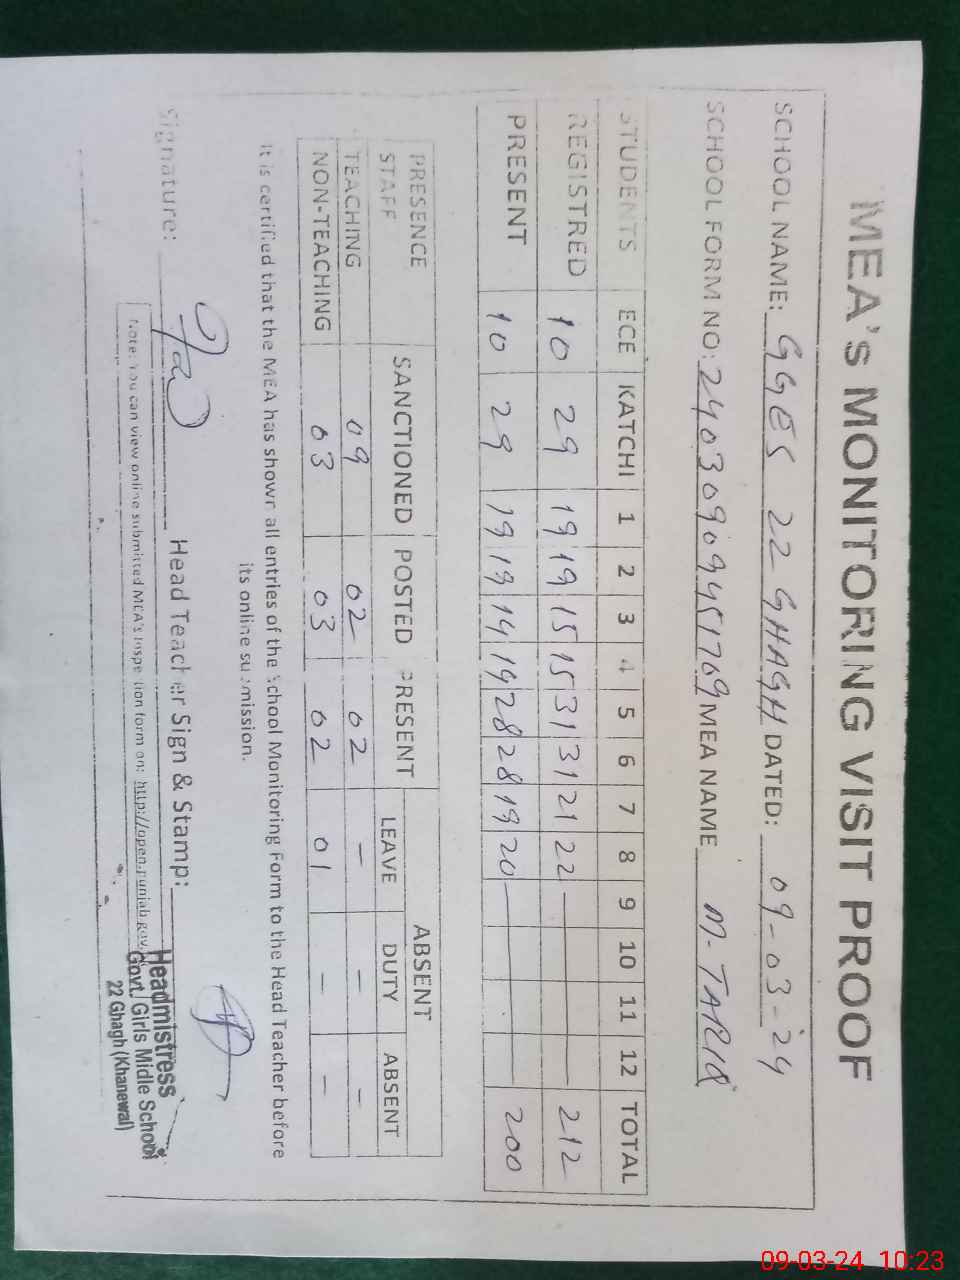 MEA's MONITORING VISIT PROOF
SCHOOL NAME: GGES 22 GHAGH DATED: 09-03-24
SCHOOL FORM NO: 24030909451709 MEA NAME M-TARIQ
STUDENTS ECE KATCHI 1 2 3 4 5 6 7 8 9 10 11 12 TOTAL
REGISTRED 10 29 19 19 15 15 31 31 21 22 — 212
PRESENT 10 29 19 19 14 14 28 28 19 20 — 200
PRESENCE STAFF SANCTIONED POSTED PRESENT ABSENT
LEAVE DUTY ABSENT
TEACHING 09 02 02 - - -
NON-TEACHING 03 03 02 01 - -
It is certified that the MEA has shown all entries of the School Monitoring Form to the Head Teacher before
its online submission.
Signature: Head Teacher Sign & Stamp:
Headmistress
Govt. Girls Midle School
22 Ghagh (Khanewal)
Note: You can view online submitted MEA's Inspection form on: http://open.punjab.gov.
09-03-24 10:23